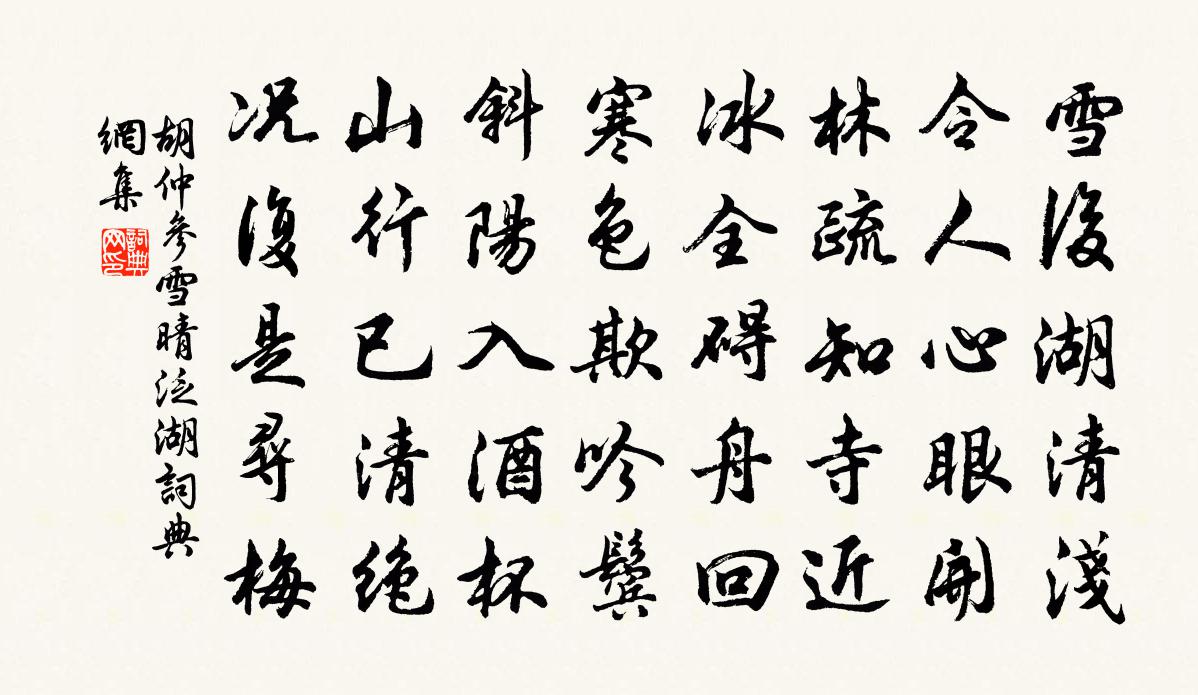 雪後湖清淺
令人心眼開
林疏知寺近
冰全碍舟回
寒色欺吟鬢
斜陽入酒杯
山行已清絶
况復是尋梅
胡仲參雪晴泛湖詞典
網集
詞典
网印